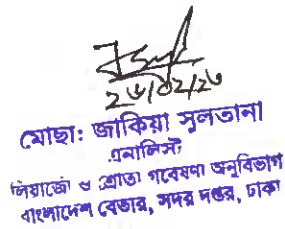 ২৬/০২/২৩
মোছা: জাকিয়া সুলতানা
এনালিস্ট
লিয়াজোঁ ও শ্রোতা গবেষণা অনুবিভাগ
বাংলাদেশ বেতার, সদর দপ্তর, ঢাকা